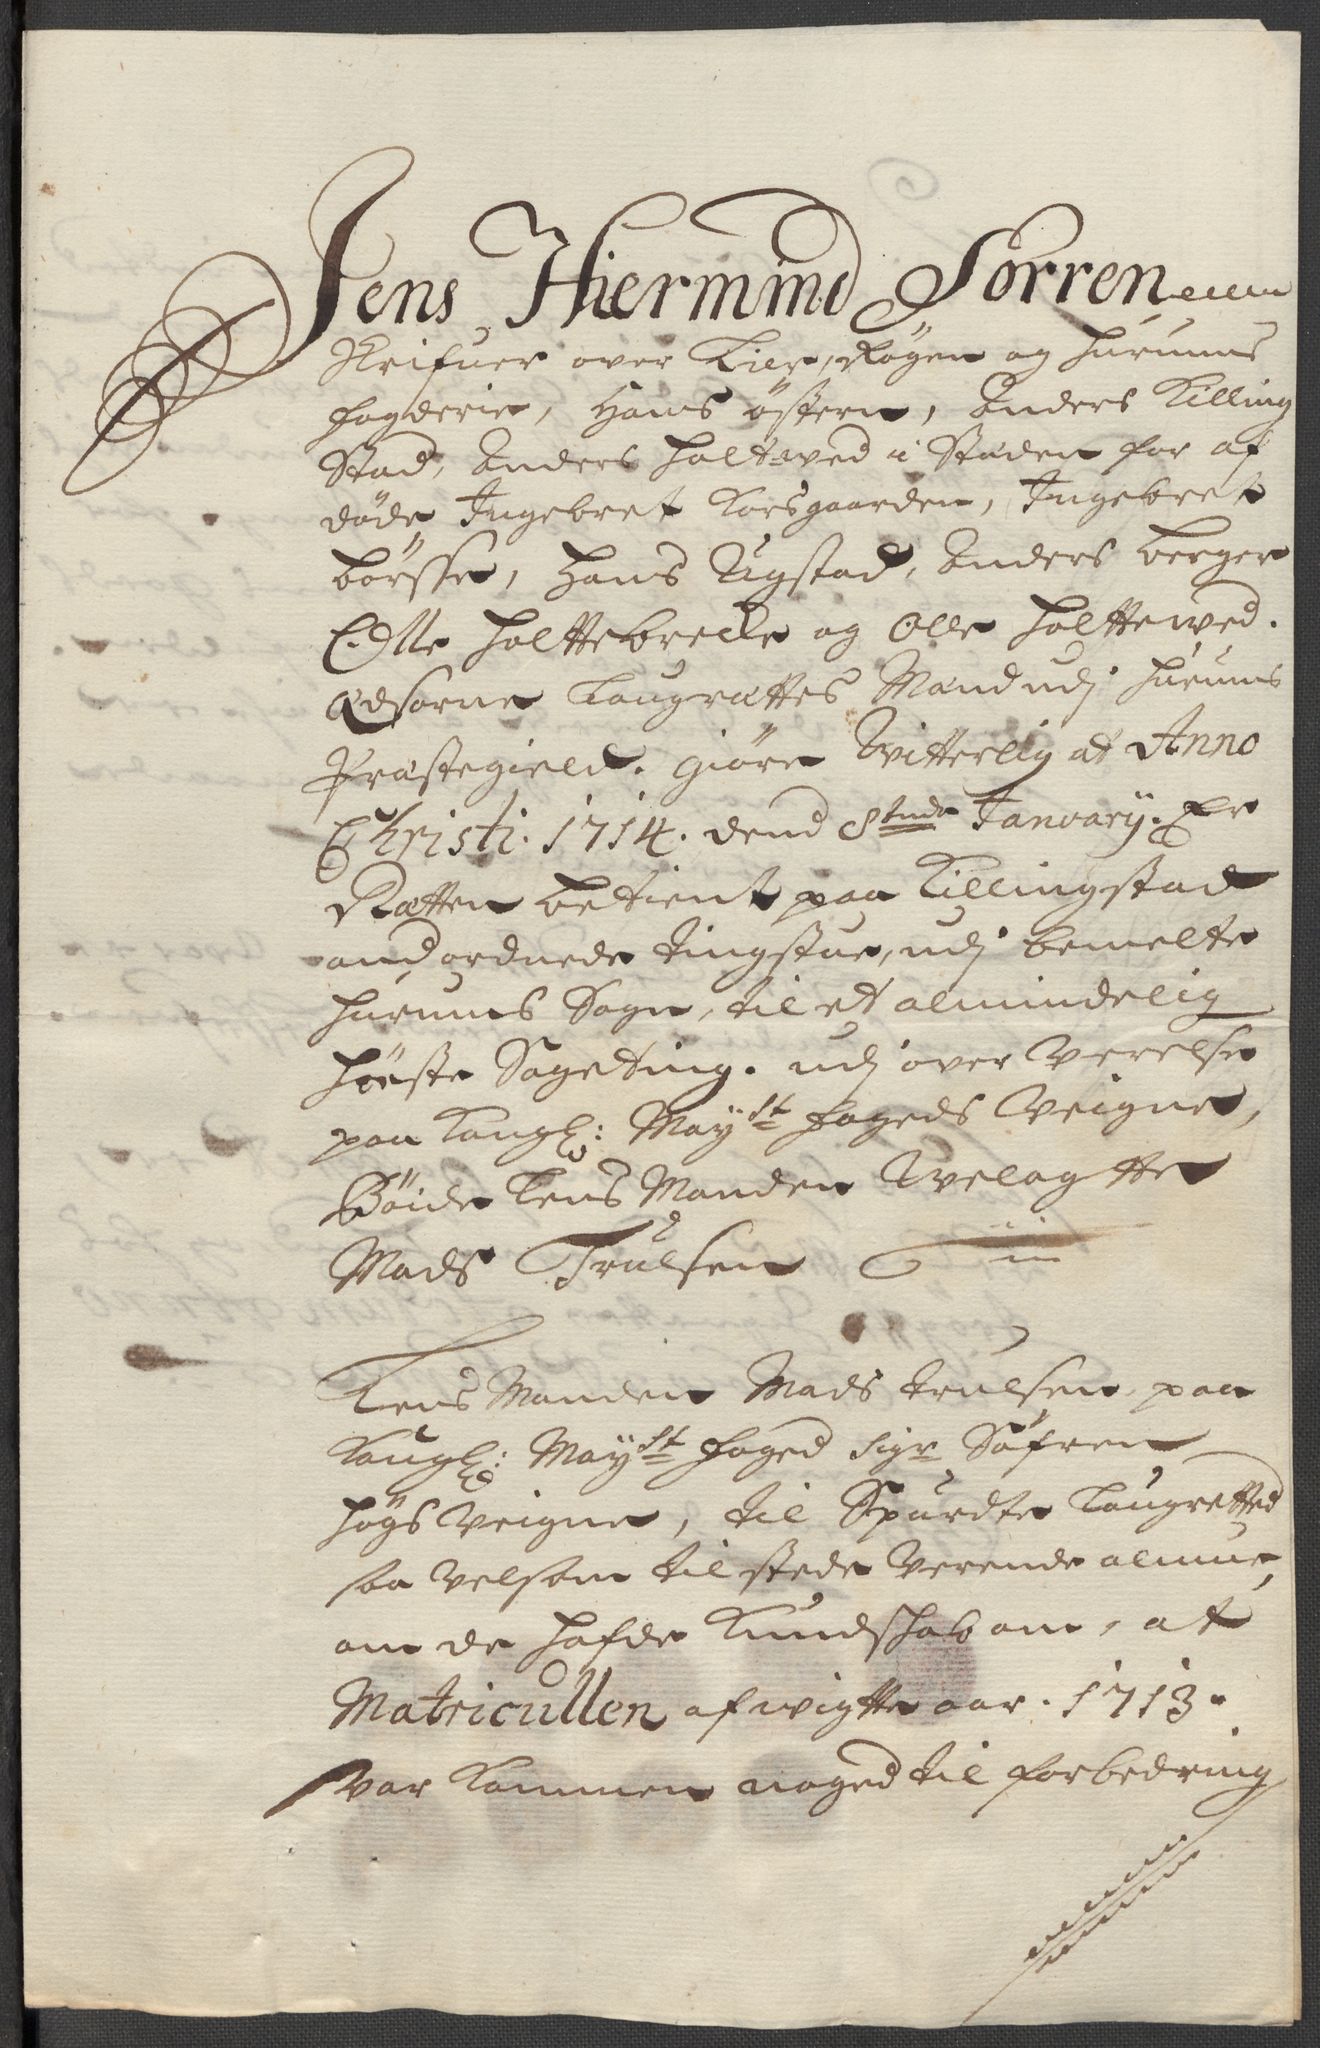 Jens Hiermind Sorren
Skrifuer over Lier, Røgen og Hurums
fogderie, Hans östern, Anders Killing
Stad, Anders Holtewed i Steden for af
döde Ingebret Korsgaarden, Ingebret
börsse, Hans Rigstad, Anders berger
Olle Holttebrecke og Olle Holttewed.
Edsorne Laugrettes Mænd udj Hurums
Præstegield. giöre Witterlig at Anno
Christi. 1714. dend 8tende January. Er
Retten betient paa Killingstad
andordnede tingstue, udj bemelte
Hurums Sogn, til et almindelig
Høste Sageting. udj over verelse
paa Kongl: Mayst fogeds Veigne,
Böide Lens Manden Welagtte
Mads Trulsen
Lens Manden Mads trulsen, paa
Kongl: Mayst foged Sigr Söfren
Högs Veigne, til Spurdte Laugretted
saa velsom til stede Verende almue,
om de hafde Kundskab om, at
Matricullen afwigtte aar. 1713.
var kommen noged til forbedring